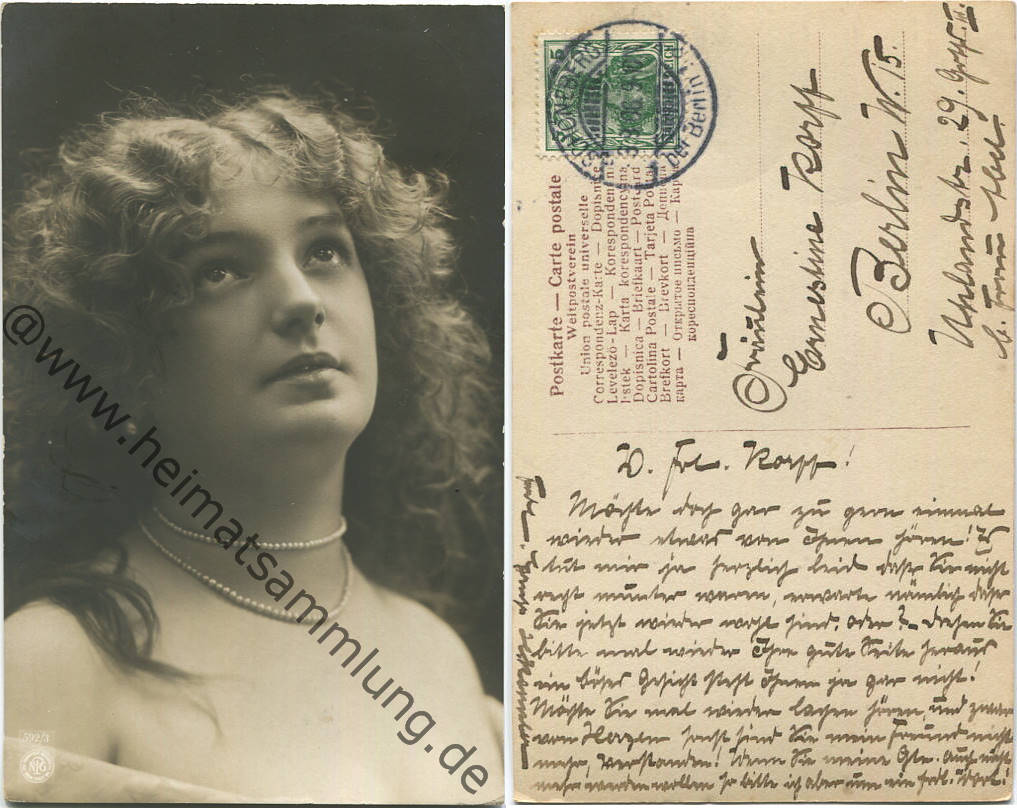 @www.heimatsammlung.de
592/3
NPG
5
DEUTSCHES REICH
SCHÖNEBERG
bei Berlin
Postkarte — Carte postale
Weltpostverein
Union postale universelle
Correspondenz-Karte — Dopisnice
Levelező-Lap — Korespondenční
lístek — Karta korespondencyjna
Dopisnica — Briefkaart — Post card
Cartolina Postale — Tarjeta Postal
Brefkort — Brevkort —
карта — Открытое письмо —
кореспонденційна
Fräulein
Ernestine Korff
Berlin W. 15.
Uhlandstr. 29. Grths. II
b. Frau
W. Frl. Korff!
Möchte doch gar zu gern einmal
wieder etwas von Ihnen hören! Es
tut mir ja herzlich leid daß Sie nicht
recht munter waren, erwarte nämlich daß
Sie jetzt wieder wohl sind, oder? Drehen Sie
bitte mal wieder Ihre gute Seite heraus
ein böses Gesicht steht Ihnen ja gar nicht!
Möchte Sie mal wieder lachen hören, und zwar
von Herzen sonst sind Sie mein Freund nicht
mehr, verstanden! Wenn Sie meine Gste. auch nicht
mehr werden wollen so bitte ich aber um ein frdl. Wort!